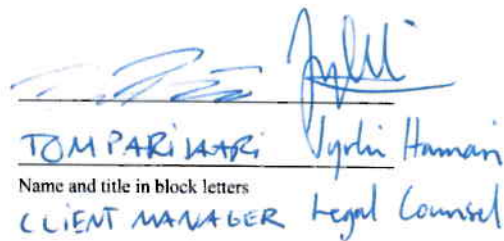 TOM PARIKKARI Jyrki Hamari
Name and title in block letters
CLIENT MANAGER Legal Counsel